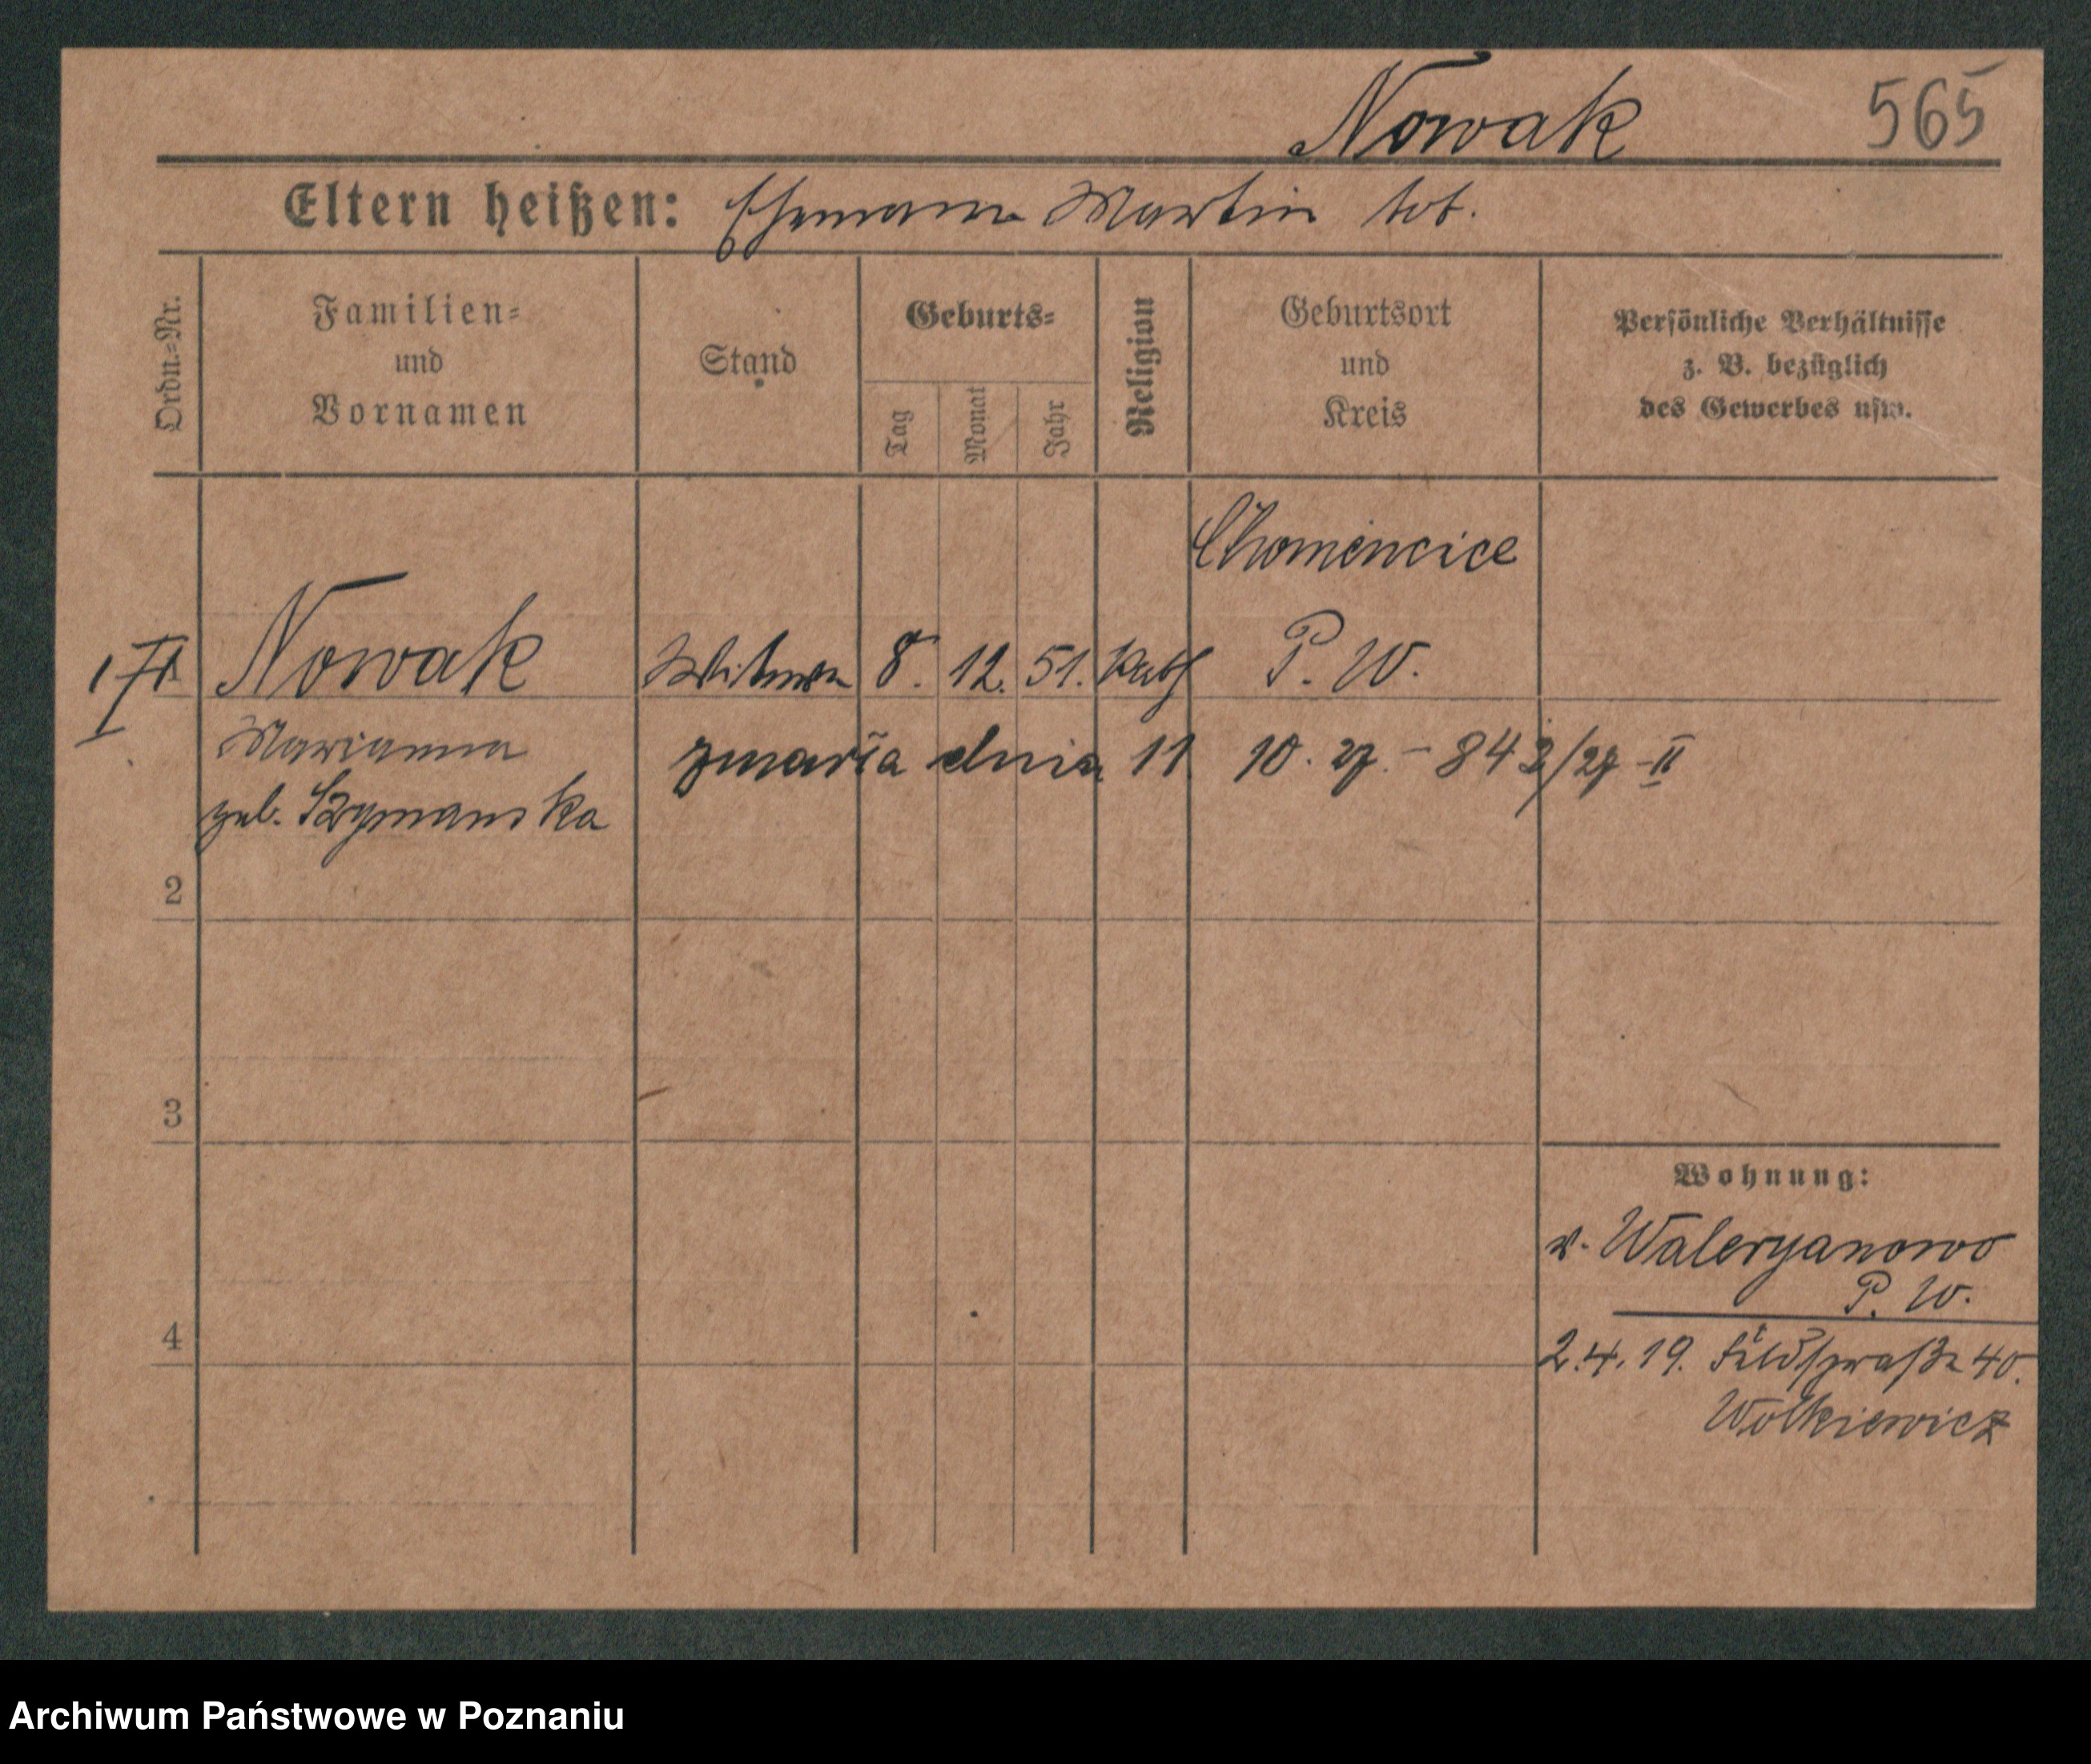 Nowak 565
Eltern heißen: Ehemann Martin tot.
Ordn.-Nr.
Familien-
und
Vornamen
Stand
Geburts-
Tag
Monat
Jahr
Religion
Geburtsort
und
Kreis
Persönliche Verhältnisse
z. B. bezüglich
des Gewerbes usw.
Chomencice
Nowak Witwe 8. 12. 51. Kath P. W.
Marianna zmarła dnia 11 10. 27. - 843/27 -II
geb. Szymanska
2
3
4
Wohnung:
v. Waleryanowo
P. W.
2.4.19. Feldstraße 40.
Wolkiewicz
Archiwum Państwowe w Poznaniu